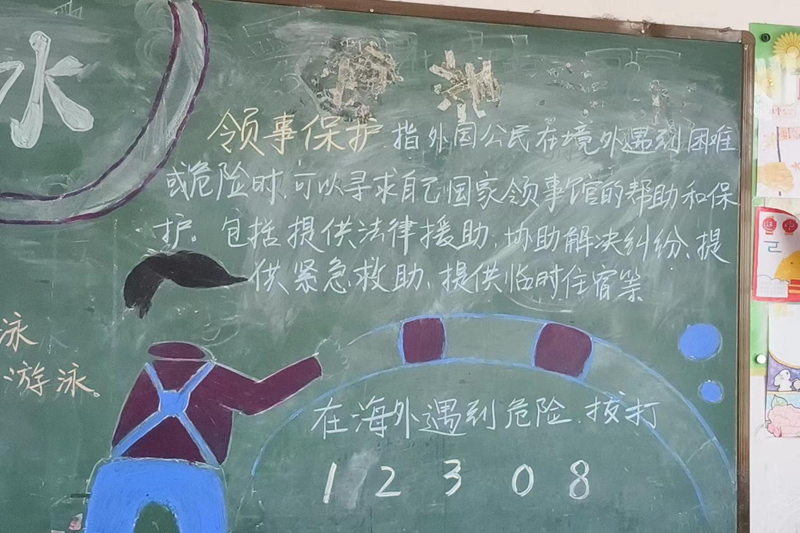 水
领事保护 指外国公民在境外遇到困难
或危险时,可以寻求自己国家领事馆的帮助和保
护。包括提供法律援助、协助解决纠纷、提
供紧急救助、提供临时住宿等
泳
游泳。
在海外遇到危险、拨打
12308